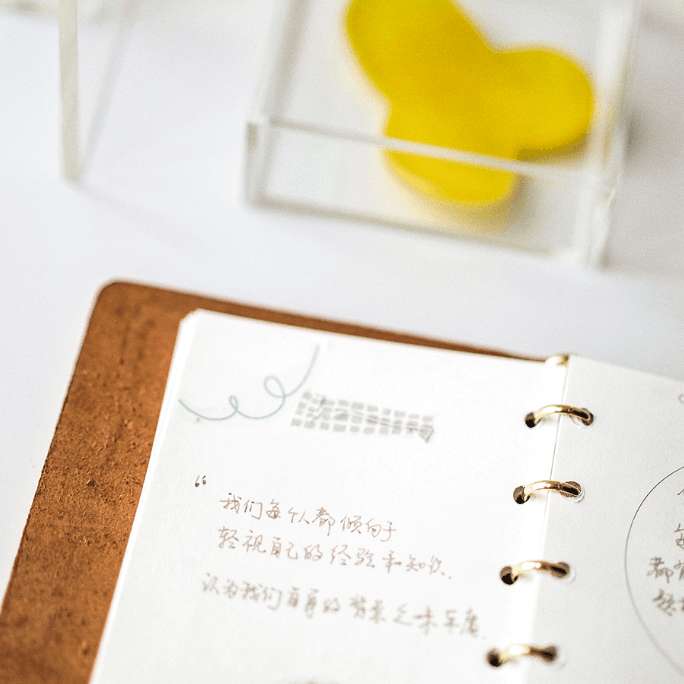 我们每个人都倾向于
轻视自己的经验和知识.
认为我们自身的背景乏味平庸.
都